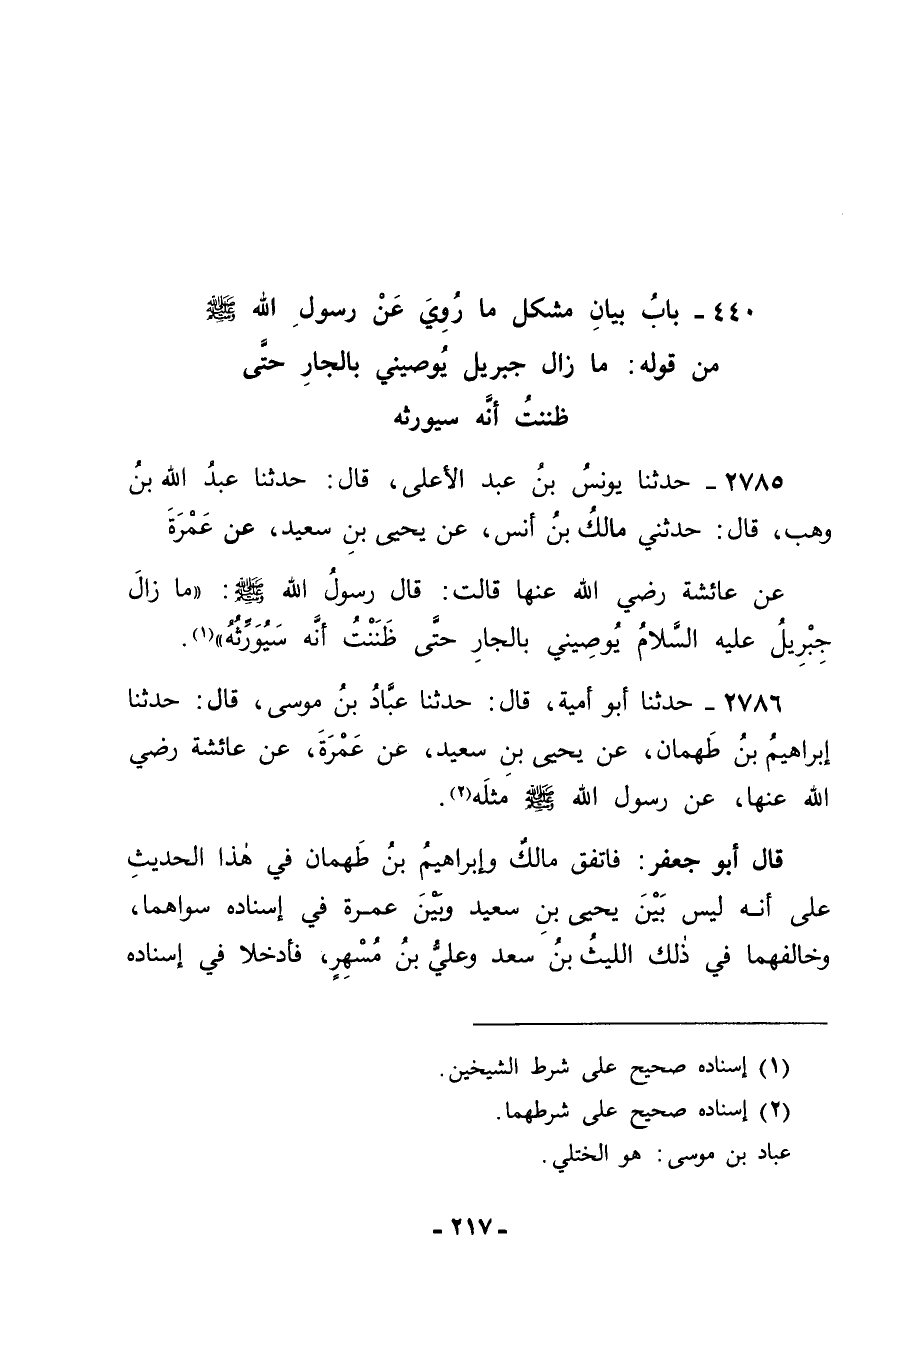 ٤٤٠ ـ بابُ بيانِ مشكل ما رُوِيَ عَنْ رسولِ الله ﷺ
من قوله: ما زال جبريل يُوصيني بالجارِ حتَّى
ظننتُ أنَّه سيورثه
٢٧٨٥ ـ حدثنا يونسُ بنُ عبد الأعلى، قال: حدثنا عبدُ الله بنُ
وهب، قال: حدثني مالكُ بنُ أنس، عن يحيى بنِ سعيد، عن عَمْرَةَ
عن عائشة رضي الله عنها قالت: قال رسولُ الله ﷺ: «ما زالَ
جِبْرِيلُ عليه السَّلامُ يُوصِيني بالجارِ حتَّى ظَنَنْتُ أنَّه سَيُوَرِّثُهُ»(١).
٢٧٨٦ ـ حدثنا أبو أمية، قال: حدثنا عبَّادُ بنُ موسى، قال: حدثنا
إبراهيمُ بنُ طَهمان، عن يحيى بنِ سعيد، عن عَمْرَةَ، عن عائشة رضي
الله عنها، عن رسول الله ﷺ مثلَه(٢).
قال أبو جعفر: فاتفق مالكٌ وإبراهيمُ بنُ طَهمان في هٰذا الحديثِ
على أنـه ليس بَيْنَ يحيى بنِ سعيد وبَيْنَ عمـرة في إسناده سواهما،
وخالفهما في ذٰلك الليثُ بنُ سعد وعليُّ بنُ مُسْهِرٍ، فأدخلا في إسناده
(١) إسناده صحيح على شرط الشيخين.
(٢) إسناده صحيح على شرطهما.
عباد بن موسى: هو الختلي.
ـ ٢١٧ ـ